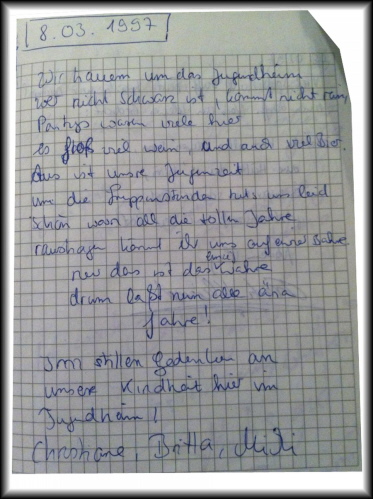 8.03.1997
Wir trauern um das Jugendheim
wer nicht schwarz ist, kommt nicht rein,
Partys waren viele hier
es floß viel wein, und auch viel Bier.
Aus ist unsre Jugendzeit
um die Gruppenstunden tuts uns leid
schön warn all die tollen Jahre
rausholen könnt ihr uns auf einer Bahre
nur das ist das einzig Wahre
drum laßt nun alle
Jahre!
Im stillen Gedenken an
unsere Kindheit hier im
Jugendheim!
Christiane, Britta, Michi